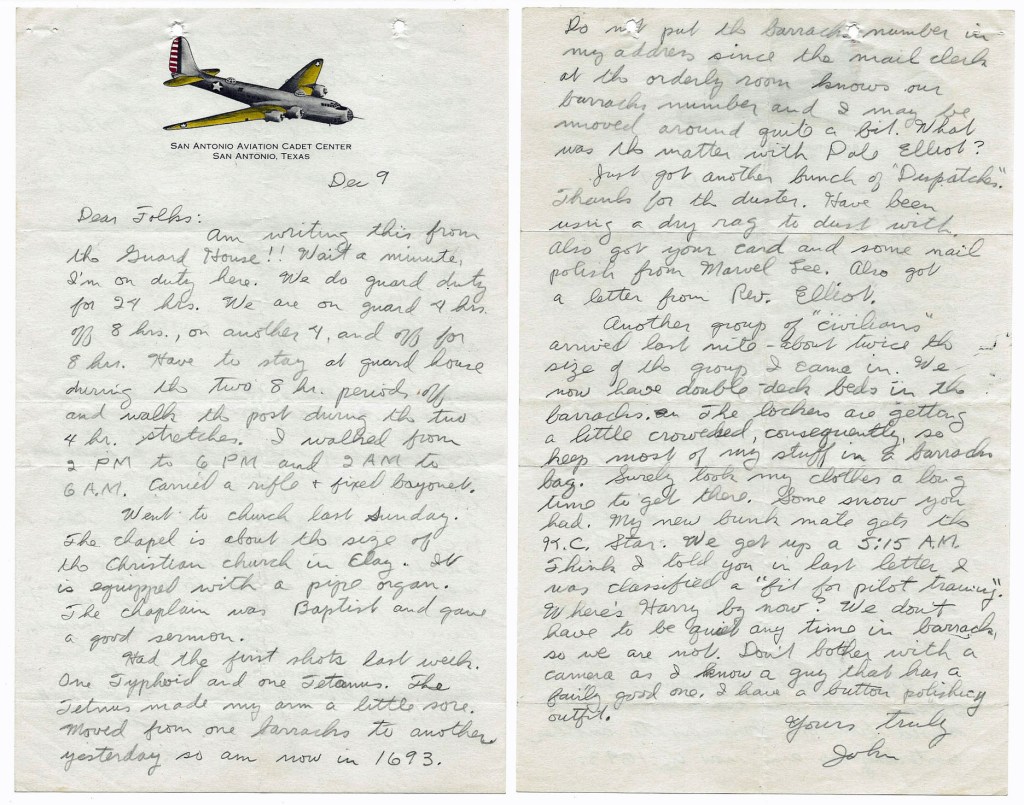 San Antonio Aviation Cadet Center
San Antonio, Texas
Dec 9
Dear Folks:
Am writing this from
the Guard House!! Wait a minute,
I'm on duty here. We do guard duty
for 24 hrs. We are on guard 4 hrs.
off 8 hrs., on another 4, and off for
8 hrs. Have to stay at guard house
during the two 8 hr. periods off
and walk the post during the two
4 hr. stretches. I walked from
2 PM to 6 PM and 2 AM to
6 A.M. Carried a rifle + fixed bayonet.
Went to church last Sunday.
The chapel is about the size of
the Christian church in Clay. It
is equipped with a pipe organ.
The chaplain was Baptist and gave
a good sermon.
Had the first shots last week.
One Typhoid and one Tetanus. The
Tetnus made my arm a little sore.
Moved from one barracks to another
yesterday so am now in 1693.
Do not put the barracks number in
my address since the mail clerk
at the orderly room knows our
barracks number and I may be
moved around quite a bit. What
was the matter with Dale Elliot?
Just got another bunch of "Dispatches."
Thanks for the duster. Have been
using a dry rag to dust with.
Also got your card and some nail
polish from Marvel Lee. Also got
a letter from Rev. Elliot.
Another group of "civilians"
arrived last nite - about twice the
size of the group I came in. We
now have double-deck beds in the
barracks. The lockers are getting
a little crowded, consequently, so
keep most of my stuff in a barracks
bag. Surely took my clothes a long
time to get there. Some snow you
had. My new bunk mate gets the
K.C. Star. We get up a 5:15 A.M.
Think I told you in last letter I
was classified a "fit for pilot training".
Where's Harry by now? We don't
have to be quiet any time in barracks,
so we are not. Don't bother with a
camera as I know a guy that has a
fairly good one. I have a button polishing
outfit.
Yours truly
John